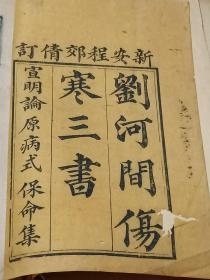 新安程郊倩訂
劉河間傷
寒三書
宣明論原病式 保命集